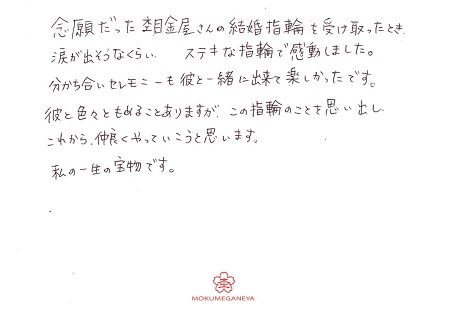 念願だった杢目金屋さんの結婚指輪を受け取ったとき
涙が出そうなくらい ステキな指輪で感動しました。
分かち合いセレモニーも彼と一緒に出来て楽しかったです。
彼と色々ともめることありますが、この指輪のことを思い出し
これから、仲良くやっていこうと思います。
私の一生の宝物です。
MOKUMEGANEYA